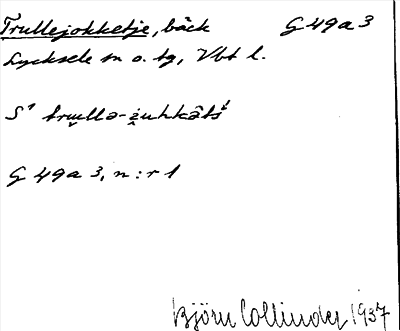 Trullejokketje, bäck G 49 a 3
Lycksele sn o. tg, Vbt l.
G 49 a 3, n:r 1
Björn Collinder 1937